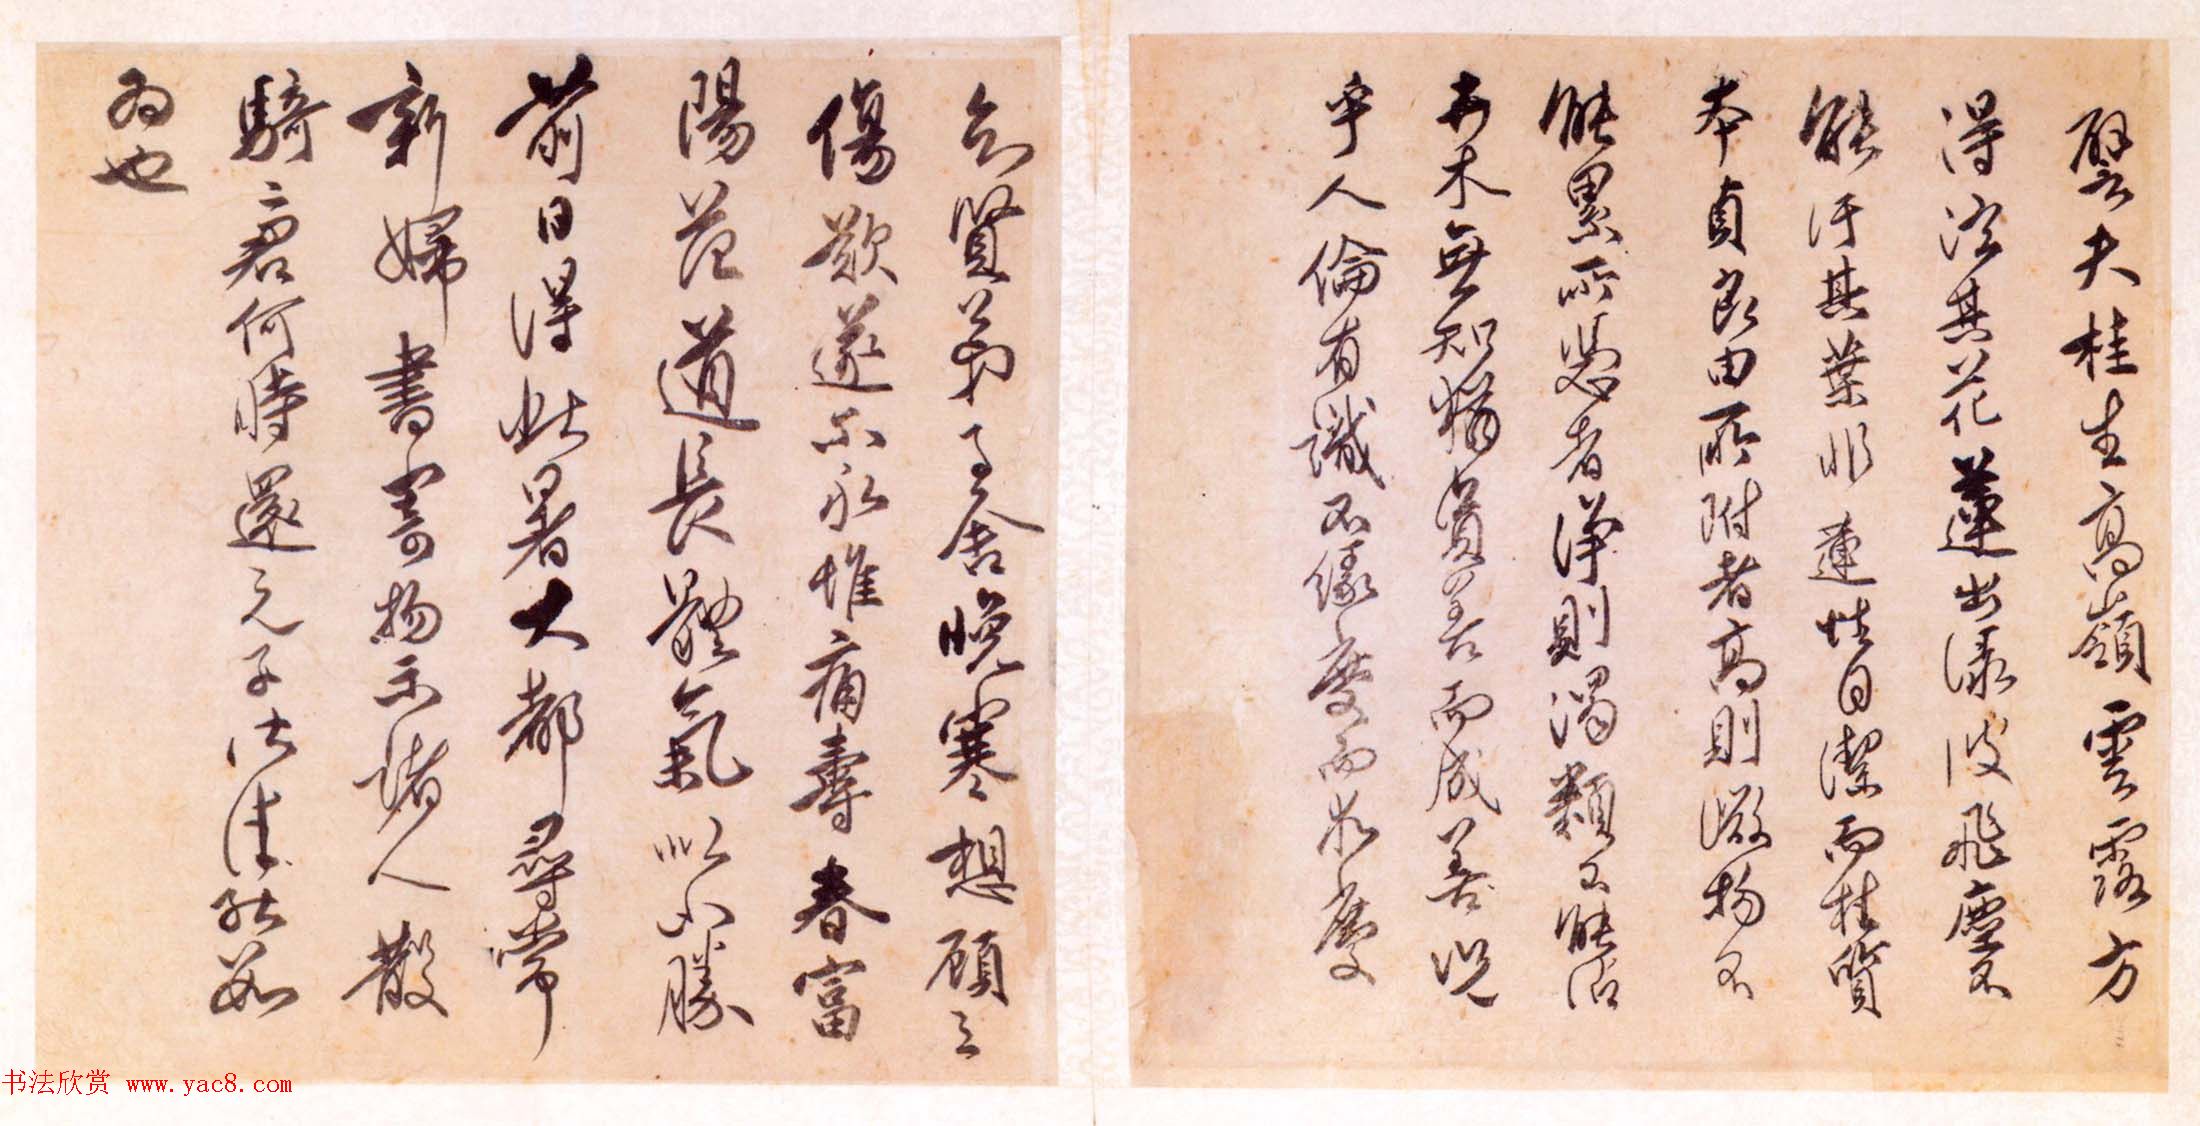 譬夫桂生高嶺雲露方
得泫其花蓮出淥波飛塵不
能汙其葉非蓮性自潔而桂質
本貞良由所附者高則微物不
能累所憑者淨則濁類不能沾
卉木無知猶資善而成善況
乎人倫有識不緣慶而求慶
賢弟子舍晚寒想顧之
傷歎遂不永惟痛壽春富
陽范道長體氣以小勝
前日得比暑大都尋常
新婦書寄物示諸人散
騎君何時還元子比佳
為也
书法欣赏 www.yac8.com